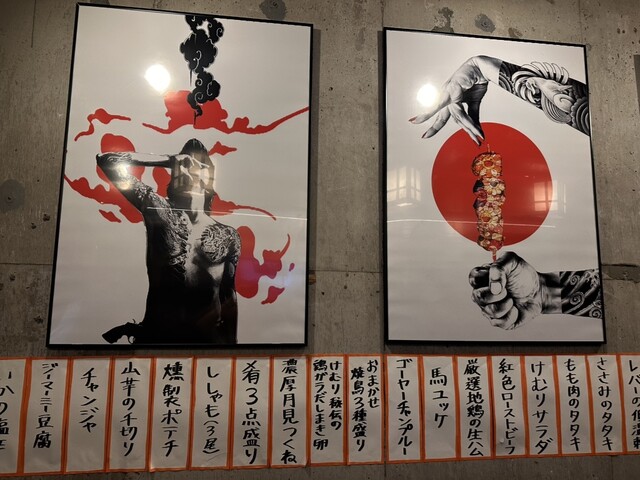 レバーの低温
ささみのタタキ
もも肉のタタキ
けむりサラダ
紅色ローストビーフ
厳選地鶏の生ハム
馬ユッケ
ゴーヤーチャンプルー
おまかせ
焼鳥3種盛り
けむり秘伝の
鶏がらだしまき卵
濃厚月見つくね
肴3点盛り
ししゃも(3尾)
燻製ポテチ
山芋の千切り
チャンジャ
ジーマーミー豆腐
いかの塩